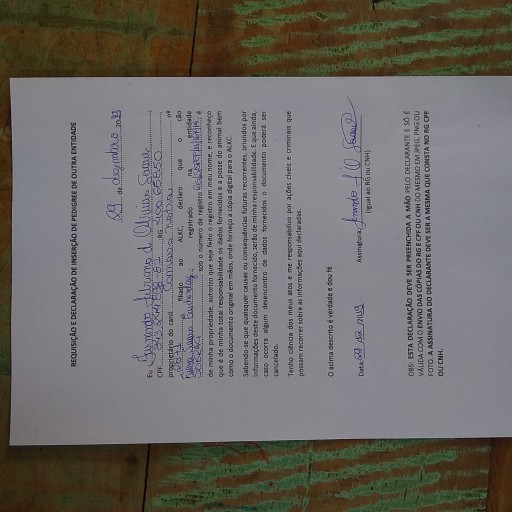 REQUISIÇÃO E DECLARAÇÃO DE INSERÇÃO DE PEDIGREE DE OUTRA ENTIDADE
29 de dezembro 2019
Eu Fernando
CPF RG
proprietário do canil nº
filiado ao ALKC, declaro que o cão
registrado na entidade
sob o número de registro é
de minha propriedade, autorizo que seja feito o registro em meu nome, e reconheço
que é de minha total responsabilidade os dados fornecidos e a posse do animal bem
como o documento original em mãos, onde forneço a cópia digital para o ALKC.
Sabendo-se que quaisquer causas ou consequências futuras recorrentes, oriundos por
informações deste documento fornecido, serão de minha responsabilidade. E que ainda,
caso ocorra algum desencontro de dados fornecidos o documento poderá ser
cancelado.
Tenho ciência dos meus atos e me responsabilizo por ações cíveis e criminais que
possam recorrer sobre as informações aqui declaradas.
O acima descrito é verdade e dou fé
Data: 29/12/2019 Assinatura
(Igual ao RG ou CNH)
OBS: ESTA DECLARAÇÃO DEVE SER PREENCHIDA À MÃO PELO DECLARANTE E SÓ É
VÁLIDA COM O ENVIO DAS CÓPIAS DO RG E CPF OU CNH DO MESMO EM JPEG, PNG OU
FOTO. A ASSINATURA DO DECLARANTE DEVE SER A MESMA QUE CONSTA NO RG CPF
OU CNH.